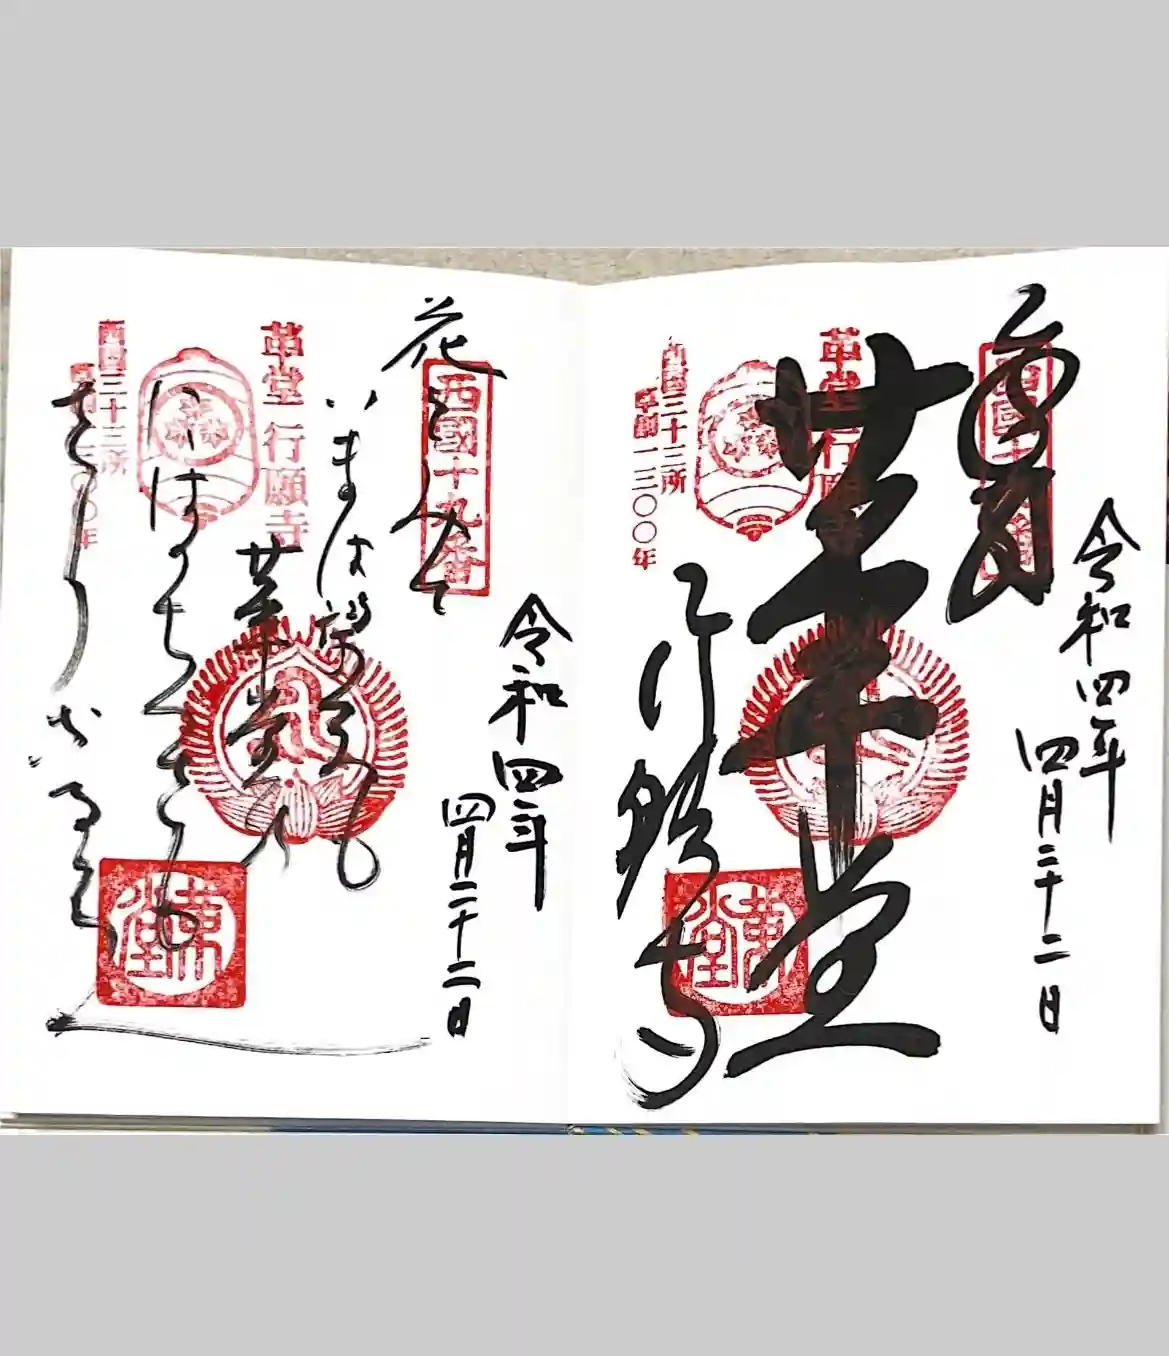 奉拝
西國十九番
令和四年
四月二十二日
革堂
行願寺
革堂 行願寺
西国三十三所
草創一三〇〇年
革堂
花
いまは望みも
革堂の
にはのちくさも
さかりなるら
西國十九番
令和四年
四月二十二日
革堂 行願寺
西国三十三所
一三〇〇年
革堂